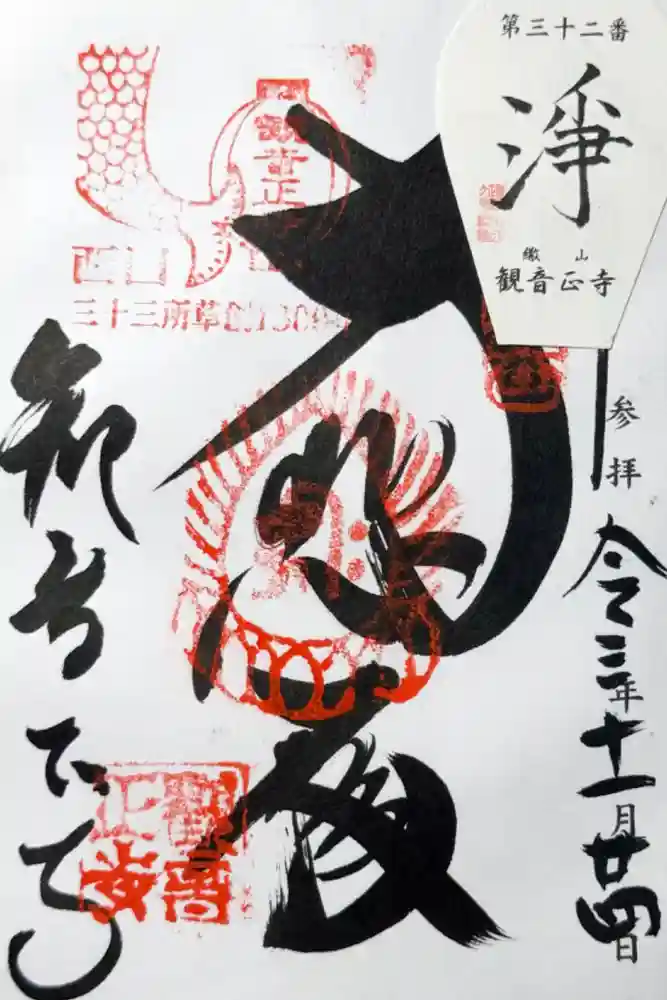 第三十二番
淨
繖山
観音正寺
参拝
令三年十一月廿四日
大悲殿
観音正寺
観音正寺
西国
三十三所草創1300年